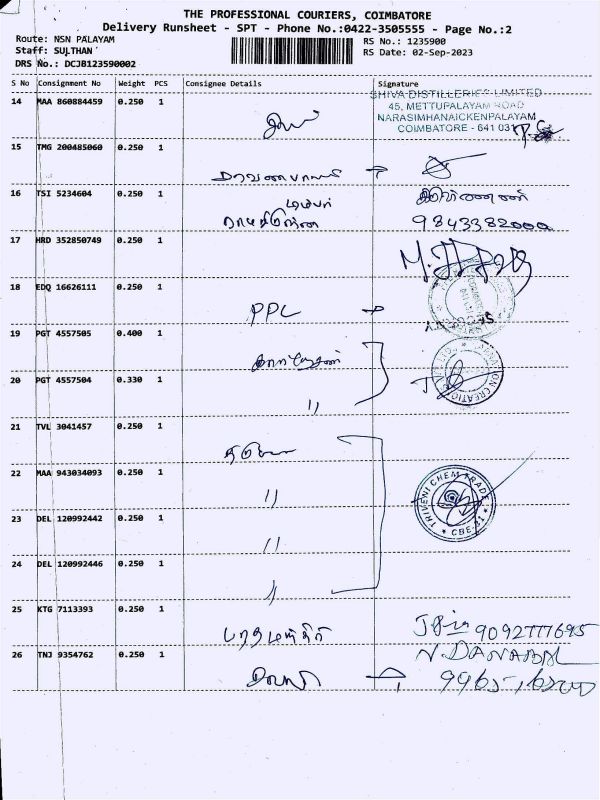 THE PROFESSIONAL COURIERS, COIMBATORE
Delivery Runsheet - SPT - Phone No.:0422-3505555 - Page No.:2
Route: NSN PALAYAM
RS No.: 1235900
Staff: SULTHAN
RS Date: 02-Sep-2023
DRS No.: DCJB123590002
S No Consignment No Weight PCS Consignee Details Signature
14 MAA 860884459 0.250 1
SHIVA DISTILLERIES LIMITED
45, METTUPALAYAM ROAD
NARASIMHANAICKENPALAYAM
COIMBATORE - 641 031
15 TMG 200485060 0.250 1
16 TSI 5234604 0.250 1
9843382000
17 HRD 352850749 0.250 1
18 EDQ 16626111 0.250 1
PPL
SECURITY
19 PGT 4557505 0.400 1
20 PGT 4557504 0.330 1
"
21 TVL 3041457 0.250 1
22 MAA 943034093 0.250 1
"
THIVENI CHEM TRADE
* CBE-31 *
23 DEL 120992442 0.250 1
"
24 DEL 120992446 0.250 1
"
25 KTG 7113393 0.250 1
9092777695
26 TNJ 9354762 0.250 1
N. DANABAL